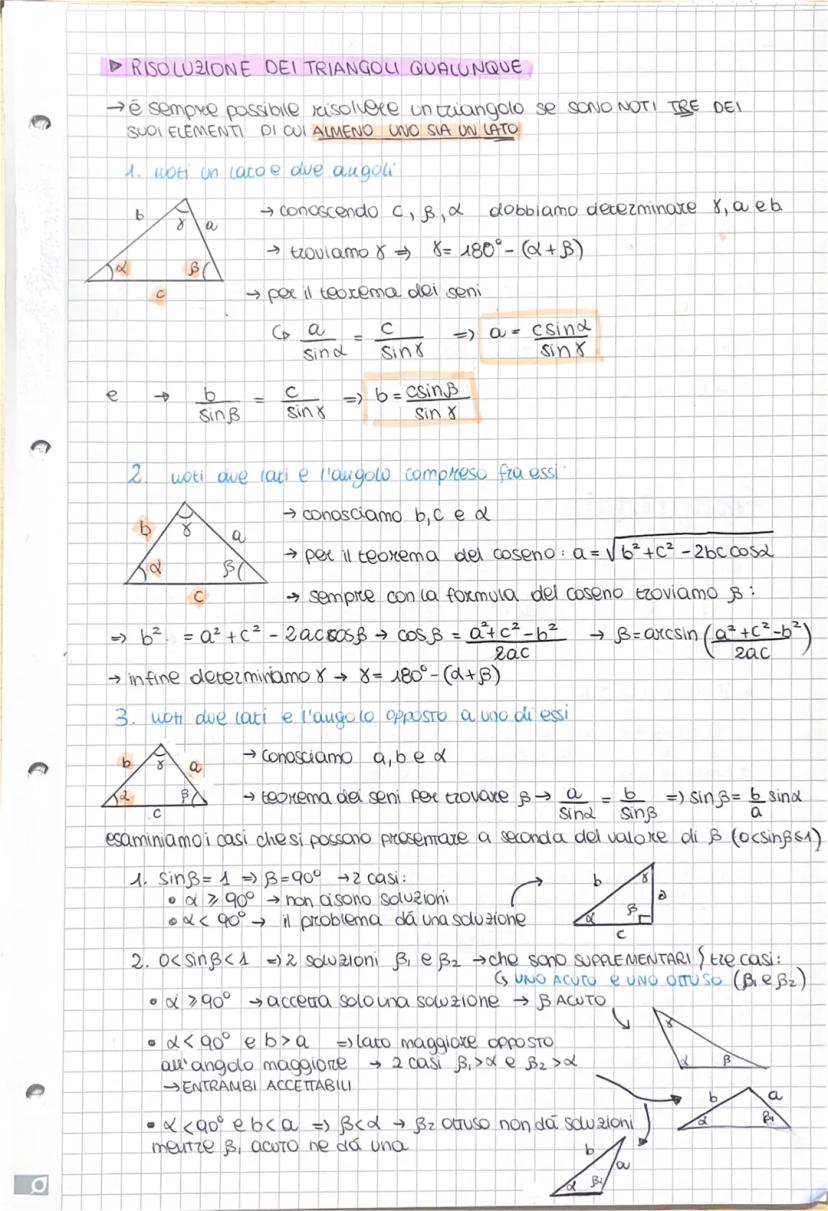 ▷ RISOLUZIONE DEI TRIANGOLI QUALUNQUE
→ é sempre possibile risolvere un triangolo se SONO NOTI TRE DEI
SUOI ELEMENTI DI CUI ALMENO UNO SIA UN LATO
1. noti un lato e due angoli
b γ a
α β
c
→ conoscendo c, β, α dobbiamo determinare γ, a e b
→ troviamo γ ⇒ γ = 180° - (α + β)
→ per il teorema dei seni
↪ a/sinα = c/sinγ ⇒ a = csinα/sinγ
e → b/sinβ = c/sinγ ⇒ b = csinβ/sinγ
2. noti due lati e l'angolo compreso fra essi
b γ a
α β
c
→ conosciamo b, c e α
→ per il teorema del coseno: a = √(b² + c² - 2bc cosα)
→ sempre con la formula del coseno troviamo β:
⇒ b² = a² + c² - 2ac cosβ → cosβ = (a² + c² - b²)/2ac → β = arcsin((a² + c² - b²)/2ac)
→ infine determiniamo γ → γ = 180° - (α + β)
3. noti due lati e l'angolo opposto a uno di essi
b γ a
α β
c
→ conosciamo a, b e α
→ teorema dei seni per trovare β → a/sinα = b/sinβ ⇒ sinβ = b/a sinα
esaminiamo i casi che si possono presentare a seconda del valore di β (0<sinβ≤1)
1. sinβ = 1 ⇒ β = 90° → 2 casi:
• α ≥ 90° → non ci sono soluzioni
• α < 90° → il problema dá una soluzione
b γ a
α β
c
2. 0<sinβ<1 ⇒ 2 soluzioni β₁ e β₂ → che sono SUPPLEMENTARI { tre casi:
↪ UNO ACUTO e UNO OTTUSO (β₁ e β₂)
• α ≥ 90° → accetta solo una soluzione → β ACUTO
γ
α β
• α < 90° e b > a ⇒ lato maggiore opposto
all'angolo maggiore → 2 casi β₁ > α e β₂ > α
→ ENTRAMBI ACCETTABILI
b a
α β₁
• α < 90° e b < a ⇒ β < α → β₂ ottuso non dá soluzioni
mentre β₁ acuto ne dá una
b a
α β₂